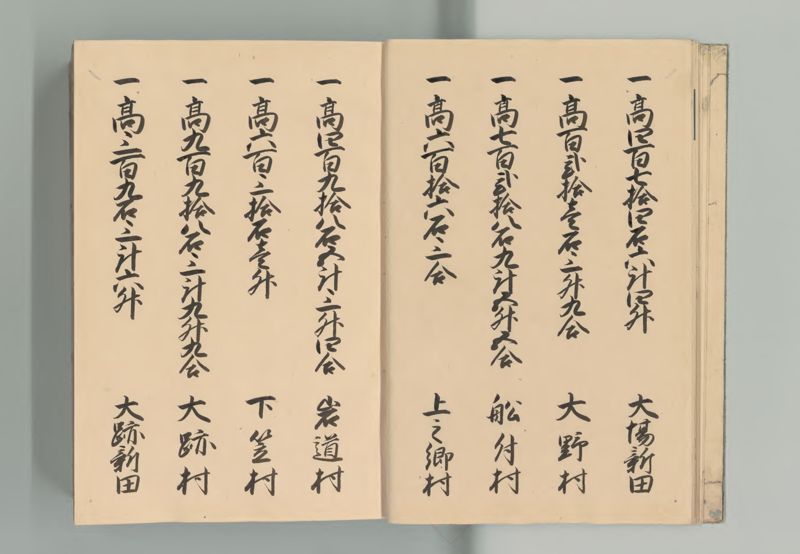 一高四百七拾四石六斗四升 大場新田
一高百弐拾壱石三升九合 大野村
一高七百弐拾八石九斗五升五合 船付村
一高六百拾六石三合 上之郷村
一高四百九拾八石五斗三升四合 岩道村
一高六百三拾石壱升 下笠村
一高九百九拾八石三斗九升九合 大跡村
一高三百九石三斗六升 大跡新田